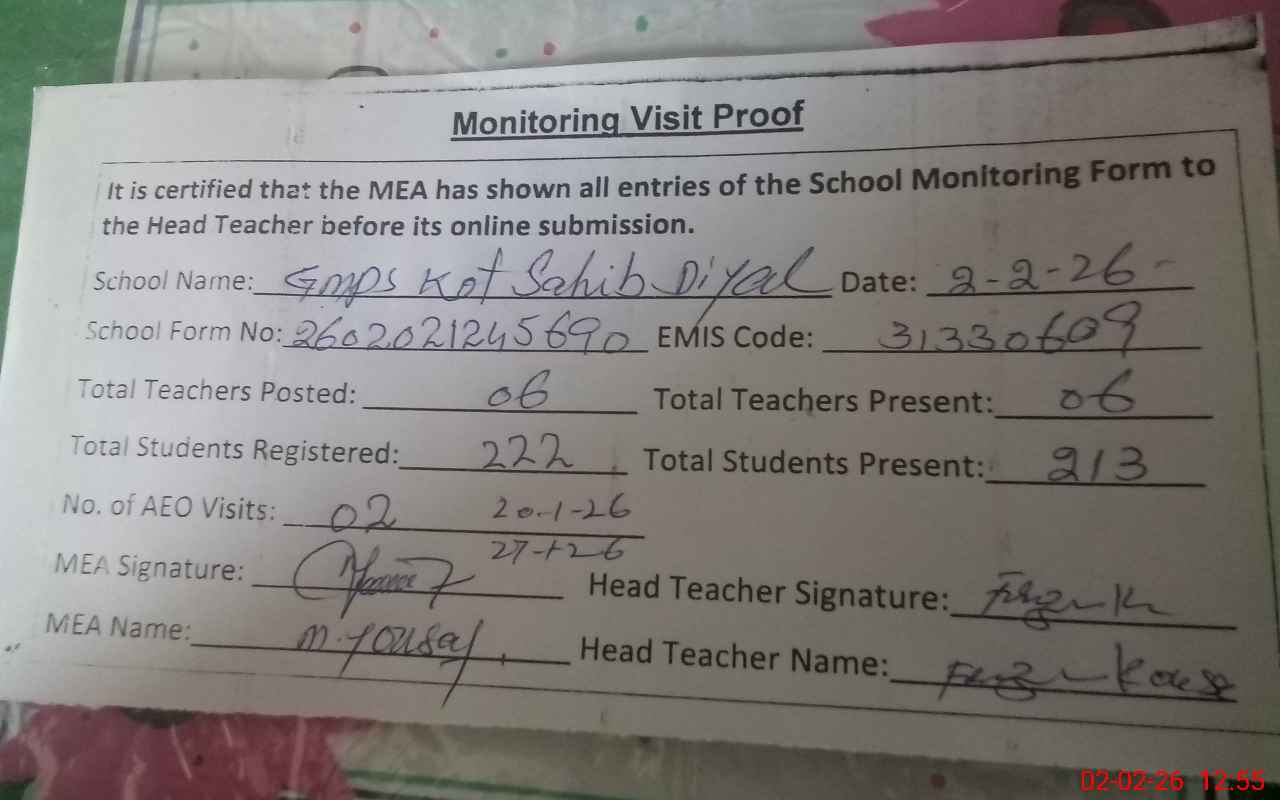 Monitoring Visit Proof
It is certified that the MEA has shown all entries of the School Monitoring Form to
the Head Teacher before its online submission.
School Name: GMPS Kot Sahib Diyal Date: 2-2-26
School Form No: 2602021245690 EMIS Code: 31330609
Total Teachers Posted: 06 Total Teachers Present: 06
Total Students Registered: 222 Total Students Present: 213
No. of AEO Visits: 02 20-1-26
27-1-26
MEA Signature: Head Teacher Signature:
MEA Name: M. Yousaf Head Teacher Name:
02-02-26 12:55